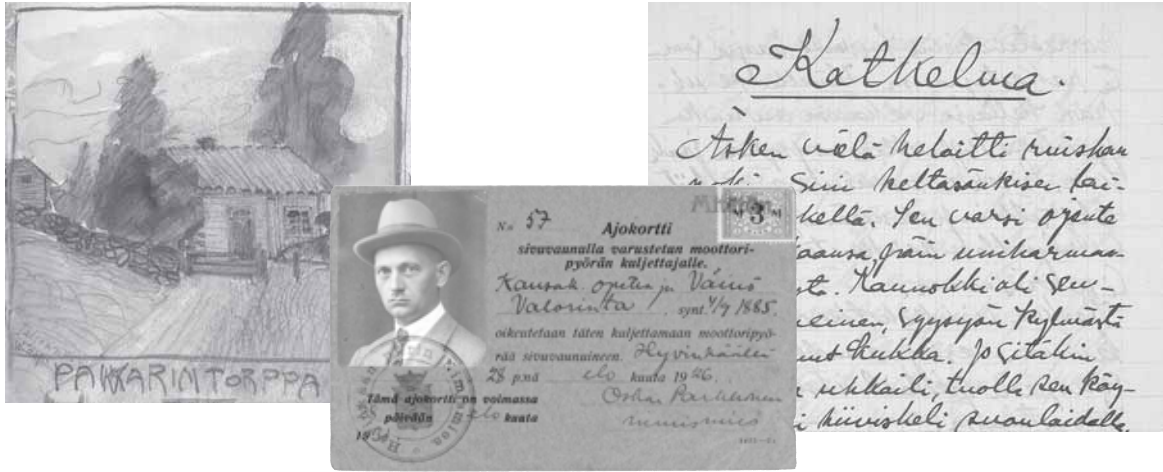 PAKKARIN TORPPA
No 57
Ajokortti
sivuvaunulla varustetun moottori-
pyörän kuljettajalle.
Kansak. opettaja Väinö
Valorinta synt. 4/9 1885,
oikeutetaan täten kuljettamaan moottoripyö-
rää sivuvaunuineen. Hyvinkäällä
28 p:nä elo kuuta 1926.
Tämä ajokortti on voimassa
päivään elo kuuta
nimismies
3
Katkelma.
Äsken vielä heloitti ruiskau
sini keltasänkisen lai-
kellä. Sen varsi ojente
päin uniharmaa
Kaunokki oli seu-
syysyön kylmästä
kukka. Jo sitäkin
uhkaili, tuolle sen köy-
kiiviskeli suonlaidalla.